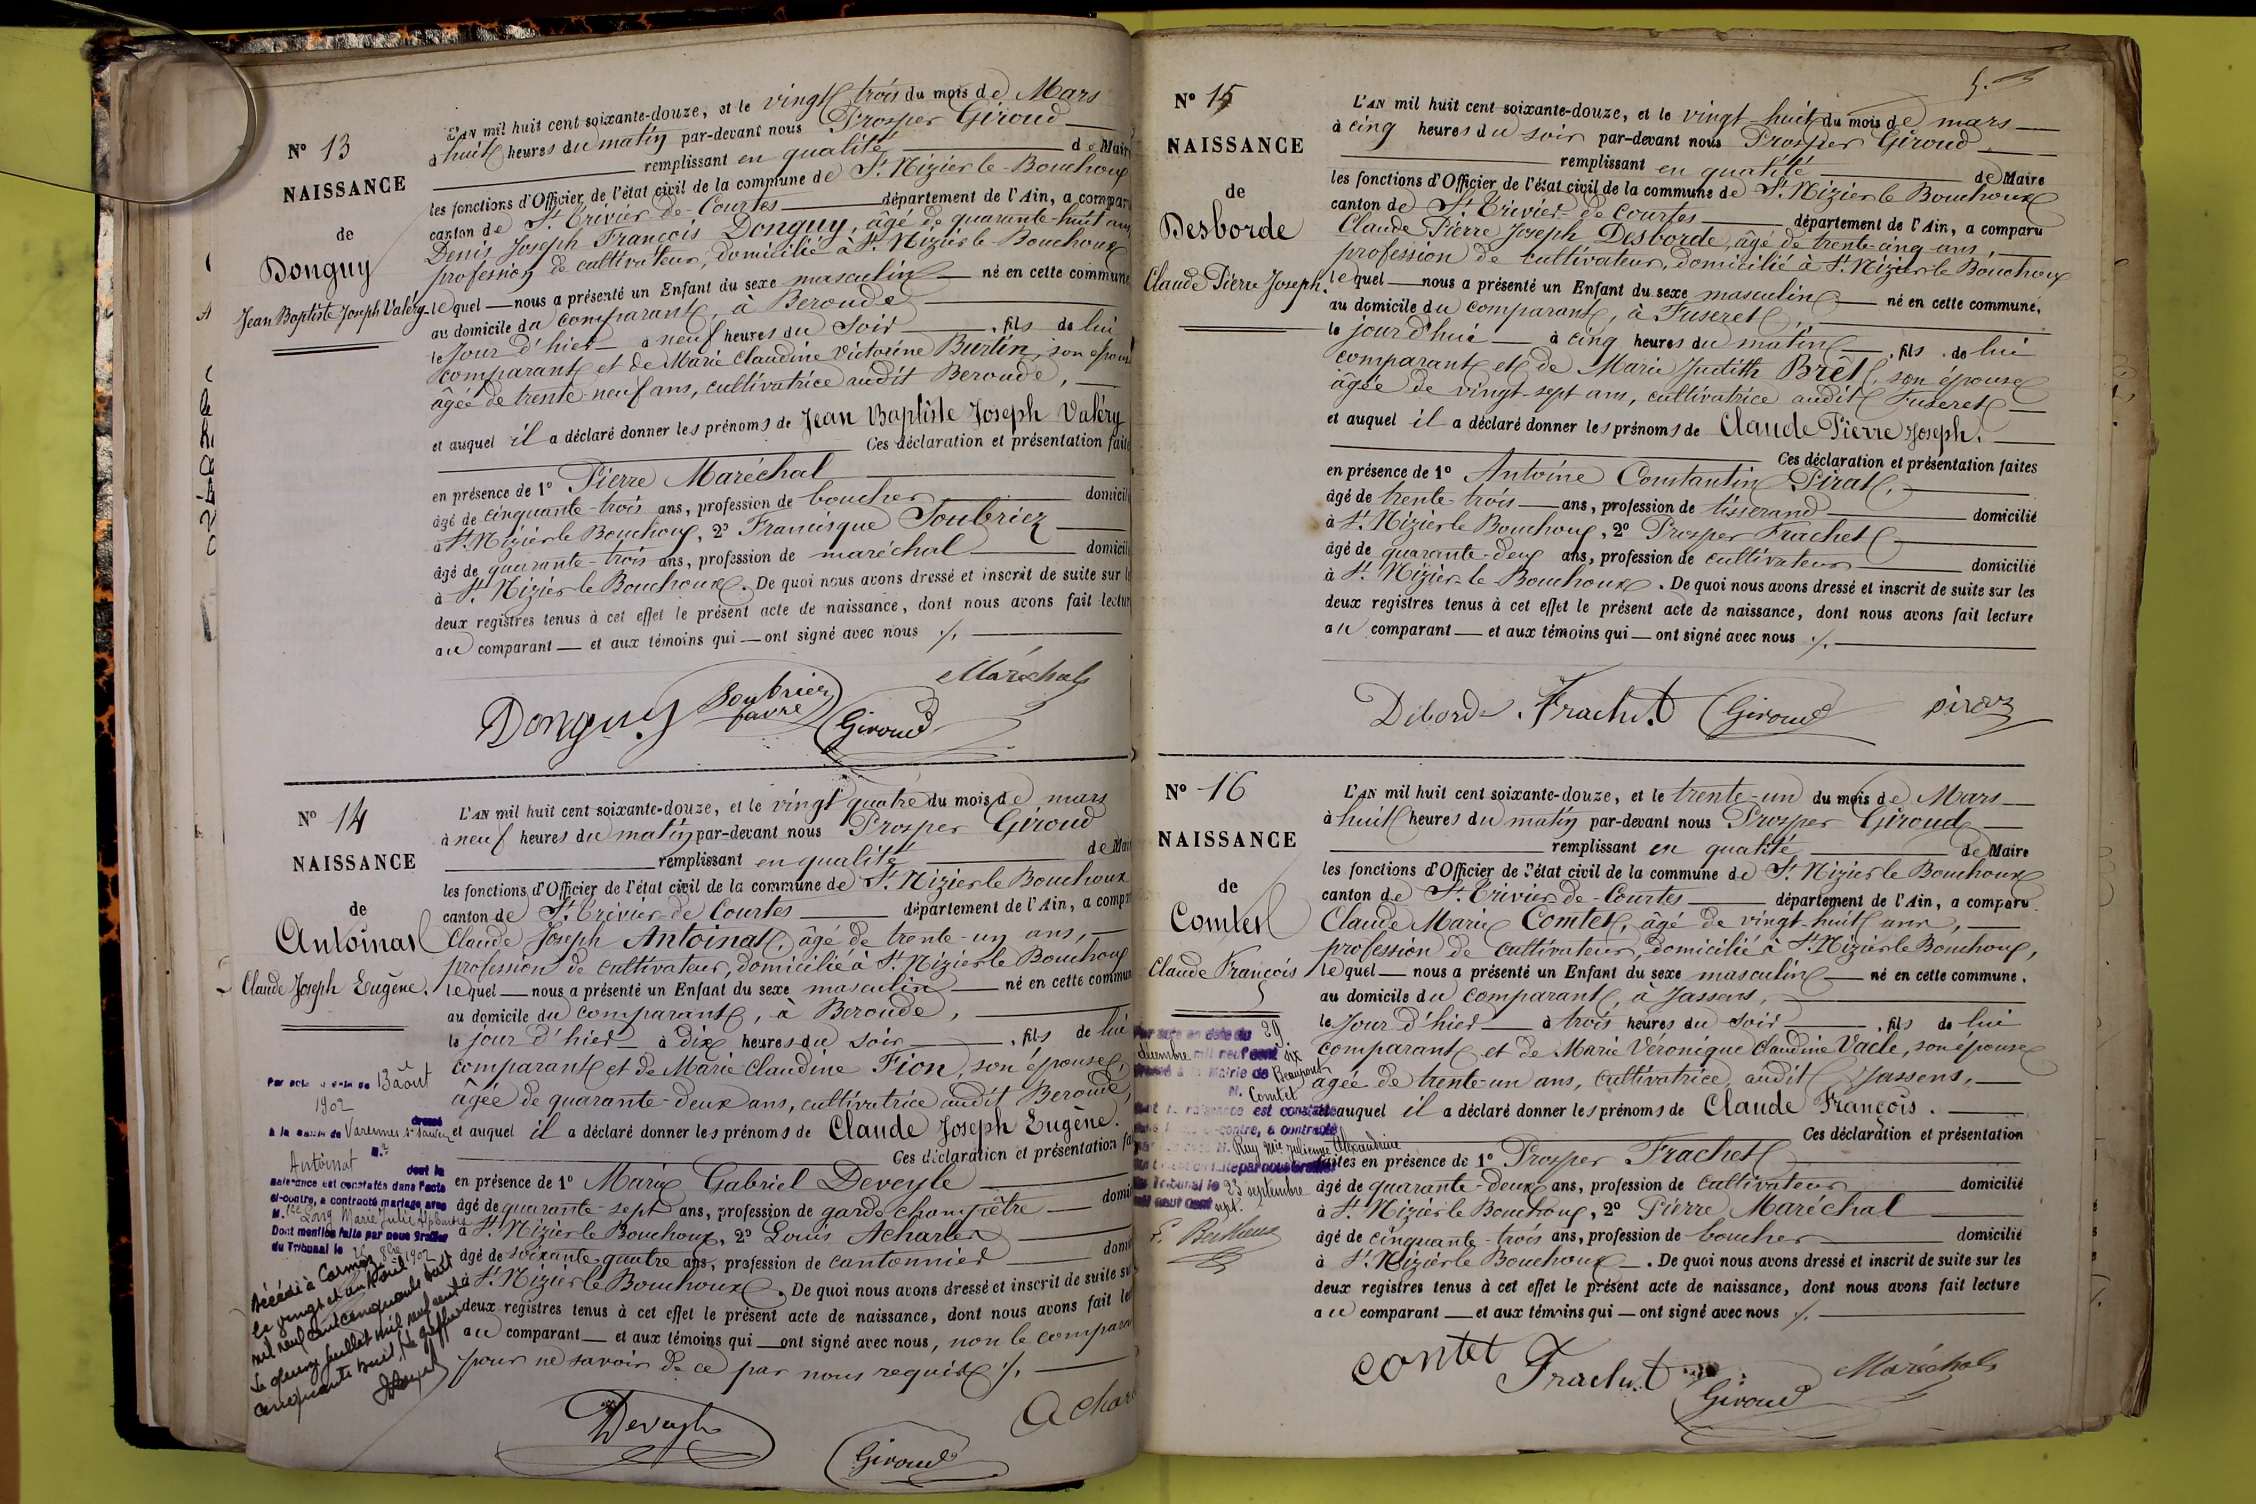 N° 13
NAISSANCE
de
Donguy
Jean Baptiste Joseph Valéry
L'AN mil huit cent soixante-douze, et le vingt trois du mois de Mars
à huit heures du matin par-devant nous Prosper Giroud
remplissant en qualité de Mair
les fonctions d'Officier de l'état civil de la commune de St. Nizier le Bouchoux
canton de St. Trivier de Courtes département de l'Ain, a compar
Denis Joseph François Donguy, âgé de quarante-huit ans
profession de cultivateur, domicilié à St. Nizier le Bouchoux
lequel nous a présenté un Enfant du sexe masculin né en cette commune
au domicile du comparant, à Beroude
le jour d'hier à neuf heures du soir, fils de lui
comparant et de Marie Claudine Victorine Burtin, son épouse
âgée de trente-neuf ans, cultivatrice audit Beroude,
et auquel il a déclaré donner les prénoms de Jean Baptiste Joseph Valéry
Ces déclaration et présentation faite
en présence de 1° Pierre Maréchal
âgé de cinquante-trois ans, profession de boucher domicil
à St. Nizier le Bouchoux, 2° Francisque Soubriez
âgé de quarante-trois ans, profession de maréchal domicil
à St. Nizier le Bouchoux. De quoi nous avons dressé et inscrit de suite sur l
deux registres tenus à cet effet le présent acte de naissance, dont nous avons fait lectur
au comparant et aux témoins qui ont signé avec nous ./.
Maréchal
Donguy Soubrier Giroud
favre
N° 14
NAISSANCE
de
Antoinat
Claude Joseph Eugène.
L'AN mil huit cent soixante-douze, et le vingt quatre du mois de mars
à neuf heures du matin par-devant nous Prosper Giroud
remplissant en qualité de Mair
les fonctions d'Officier de l'état civil de la commune de St. Nizier le Bouchoux
canton de St. Trivier de Courtes département de l'Ain, a compar
Claude Joseph Antoinat, âgé de trente-un ans,
profession de cultivateur, domicilié à St. Nizier le Bouchoux
lequel nous a présenté un Enfant du sexe masculin né en cette commun
au domicile du comparant, à Beroude,
le jour d'hier à dix heures du soir, fils de lui
comparant et de Marie Claudine Fion, son épouse,
âgée de quarante-deux ans, cultivatrice audit Beroude,
et auquel il a déclaré donner les prénoms de Claude Joseph Eugène.
Ces déclaration et présentation fai
en présence de 1° Marie Gabriel Deveyle
âgé de quarante-sept ans, profession de garde champêtre domi
à St. Nizier le Bouchoux, 2° Louis Acharler
âgé de soixante-quatre ans, profession de cantonnier domi
à St. Nizier le Bouchoux. De quoi nous avons dressé et inscrit de suite su
deux registres tenus à cet effet le présent acte de naissance, dont nous avons fait le
au comparant et aux témoins qui ont signé avec nous, non le compara
pour ne savoir de ce par nous requis ./.
Par acte en date du 13 août
1902 dressé
à la mairie de Varennes St Sauveur
Antoinat dont la
naissance est constatée dans l'acte
ci-contre, a contracté mariage avec
M. Long Marie Julie
Dont mention faite par nous Greffier
du Tribunal le 1902
Décédé à Cormoz
le vingt et un Avril
mil neuf cent cinquante huit
Le quinze juillet mil neuf cent
cinquante huit, le greffier
Deveyle Giroud Achar
N° 15
NAISSANCE
de
Desborde
Claude Pierre Joseph.
L'AN mil huit cent soixante-douze, et le vingt-huit du mois de mars
à cinq heures du soir par-devant nous Prosper Giroud
remplissant en qualité de Maire
les fonctions d'Officier de l'état civil de la commune de St. Nizier le Bouchoux
canton de St. Trivier de Courtes département de l'Ain, a comparu
Claude Pierre Joseph Desborde, âgé de trente-cinq ans
profession de cultivateur, domicilié à St. Nizier le Bouchoux
lequel nous a présenté un Enfant du sexe masculin né en cette commune,
au domicile du comparant, à Fuseret,
le jour d'hui à cinq heures du matin, fils de lui
comparant et de Marie Judith Brêt, son épouse
âgée de vingt-sept ans, cultivatrice audit Fuseret
et auquel il a déclaré donner les prénoms de Claude Pierre Joseph.
Ces déclaration et présentation faites
en présence de 1° Antoine Constantin Pirat,
âgé de trente-trois ans, profession de tisserand domicilié
à St. Nizier le Bouchoux, 2° Prosper Frachet
âgé de quarante-deux ans, profession de cultivateur domicilié
à St. Nizier le Bouchoux. De quoi nous avons dressé et inscrit de suite sur les
deux registres tenus à cet effet le présent acte de naissance, dont nous avons fait lecture
au comparant et aux témoins qui ont signé avec nous ./.
Débord Frachet Giroud
N° 16
NAISSANCE
de
Comtet
Claude François
L'AN mil huit cent soixante-douze, et le trente-un du mois de Mars
à huit heures du matin par-devant nous Prosper Giroud
remplissant en qualité de Maire
les fonctions d'Officier de l'état civil de la commune de St. Nizier le Bouchoux
canton de St. Trivier de Courtes département de l'Ain, a comparu
Claude Marie Comtet, âgé de vingt-huit ans,
profession de cultivateur, domicilié à St. Nizier le Bouchoux,
lequel nous a présenté un Enfant du sexe masculin né en cette commune,
au domicile du comparant, à Jassens,
le jour d'hier à trois heures du soir, fils de lui
comparant et de Marie Véronique Claudine Vacle, son épouse
âgée de trente-un ans, cultivatrice, audit Jassens,
et auquel il a déclaré donner les prénoms de Claude François.
Ces déclaration et présentation
faites en présence de 1° Prosper Frachet
âgé de quarante-deux ans, profession de cultivateur domicilié
à St. Nizier le Bouchoux, 2° Pierre Maréchal
âgé de cinquante-trois ans, profession de boucher domicilié
à St. Nizier le Bouchoux. De quoi nous avons dressé et inscrit de suite sur les
deux registres tenus à cet effet le présent acte de naissance, dont nous avons fait lecture
au comparant et aux témoins qui ont signé avec nous ./.
Par acte en date du 29
décembre mil neuf cent dix
dressé à la Mairie de Beaupont
M. Comtet
dont la naissance est constatée
ci-contre, a contracté
Ruy Mie Julienne Alexandrine
par nous Greffier
du Tribunal le 23 septembre
mil neuf cent
contet Frachet Giroud Maréchal